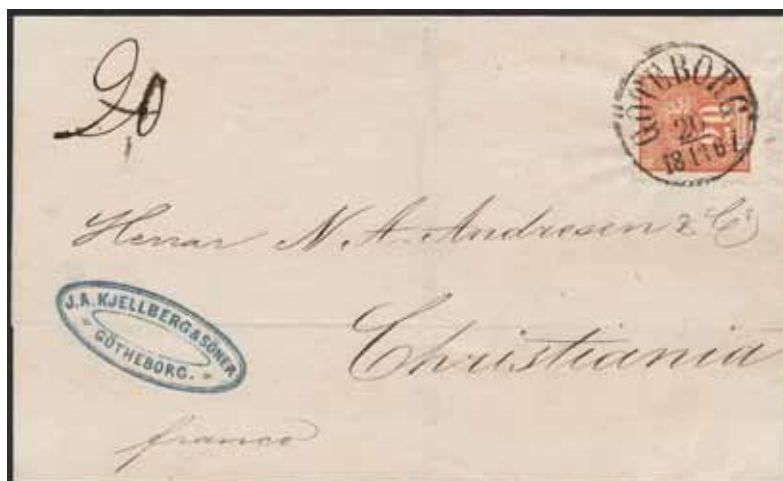 20
GÖTEBORG
20
18 11 67
20
Herrar N. A. Andresen & Co
J.A. KJELLBERG & SÖNER
GÖTHEBORG.
Christiania
franco